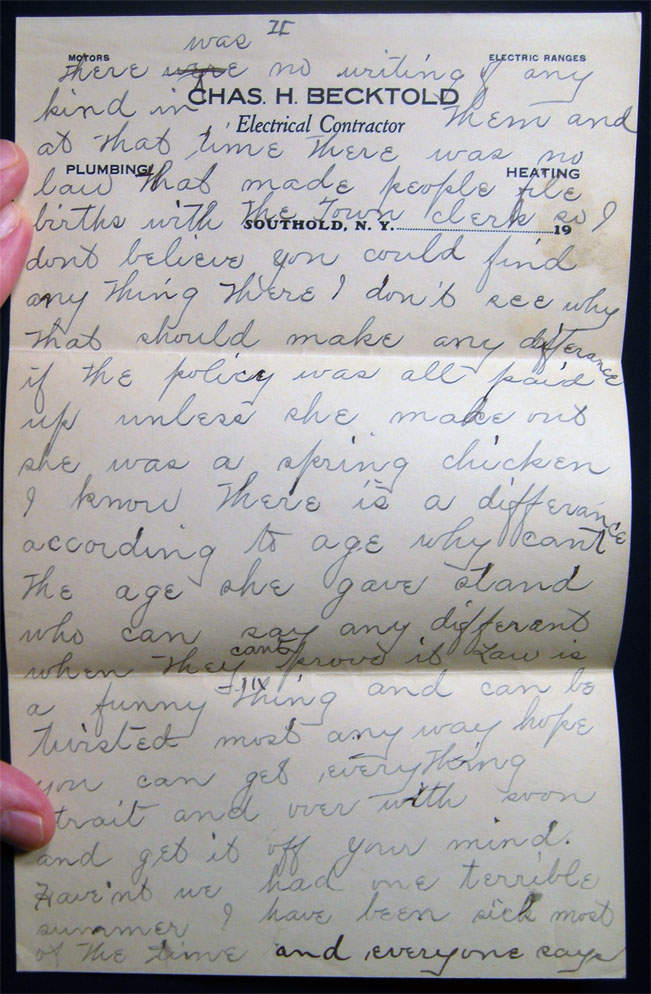 II
was
MOTORS ELECTRIC RANGES
There were no writing of any
CHAS. H. BECKTOLD
kind in them and
Electrical Contractor
at that time there was no
PLUMBING HEATING
law that made people file
births with the Town clerk so I
SOUTHOLD, N. Y. 19
dont believe you could find
any thing there I don't see why
that should make any differance
if the policy was all paid
up unless she make out
she was a spring chicken
I know there is a differance
according to age why cant
the age she gave stand
who can say any different
when they cant prove it Law is
a funny thing and can be
twisted most any way hope
you can get everything
strait and over with soon
and get it off your mind.
Have'nt we had one terrible
summer I have been sick most
of the time and everyone says